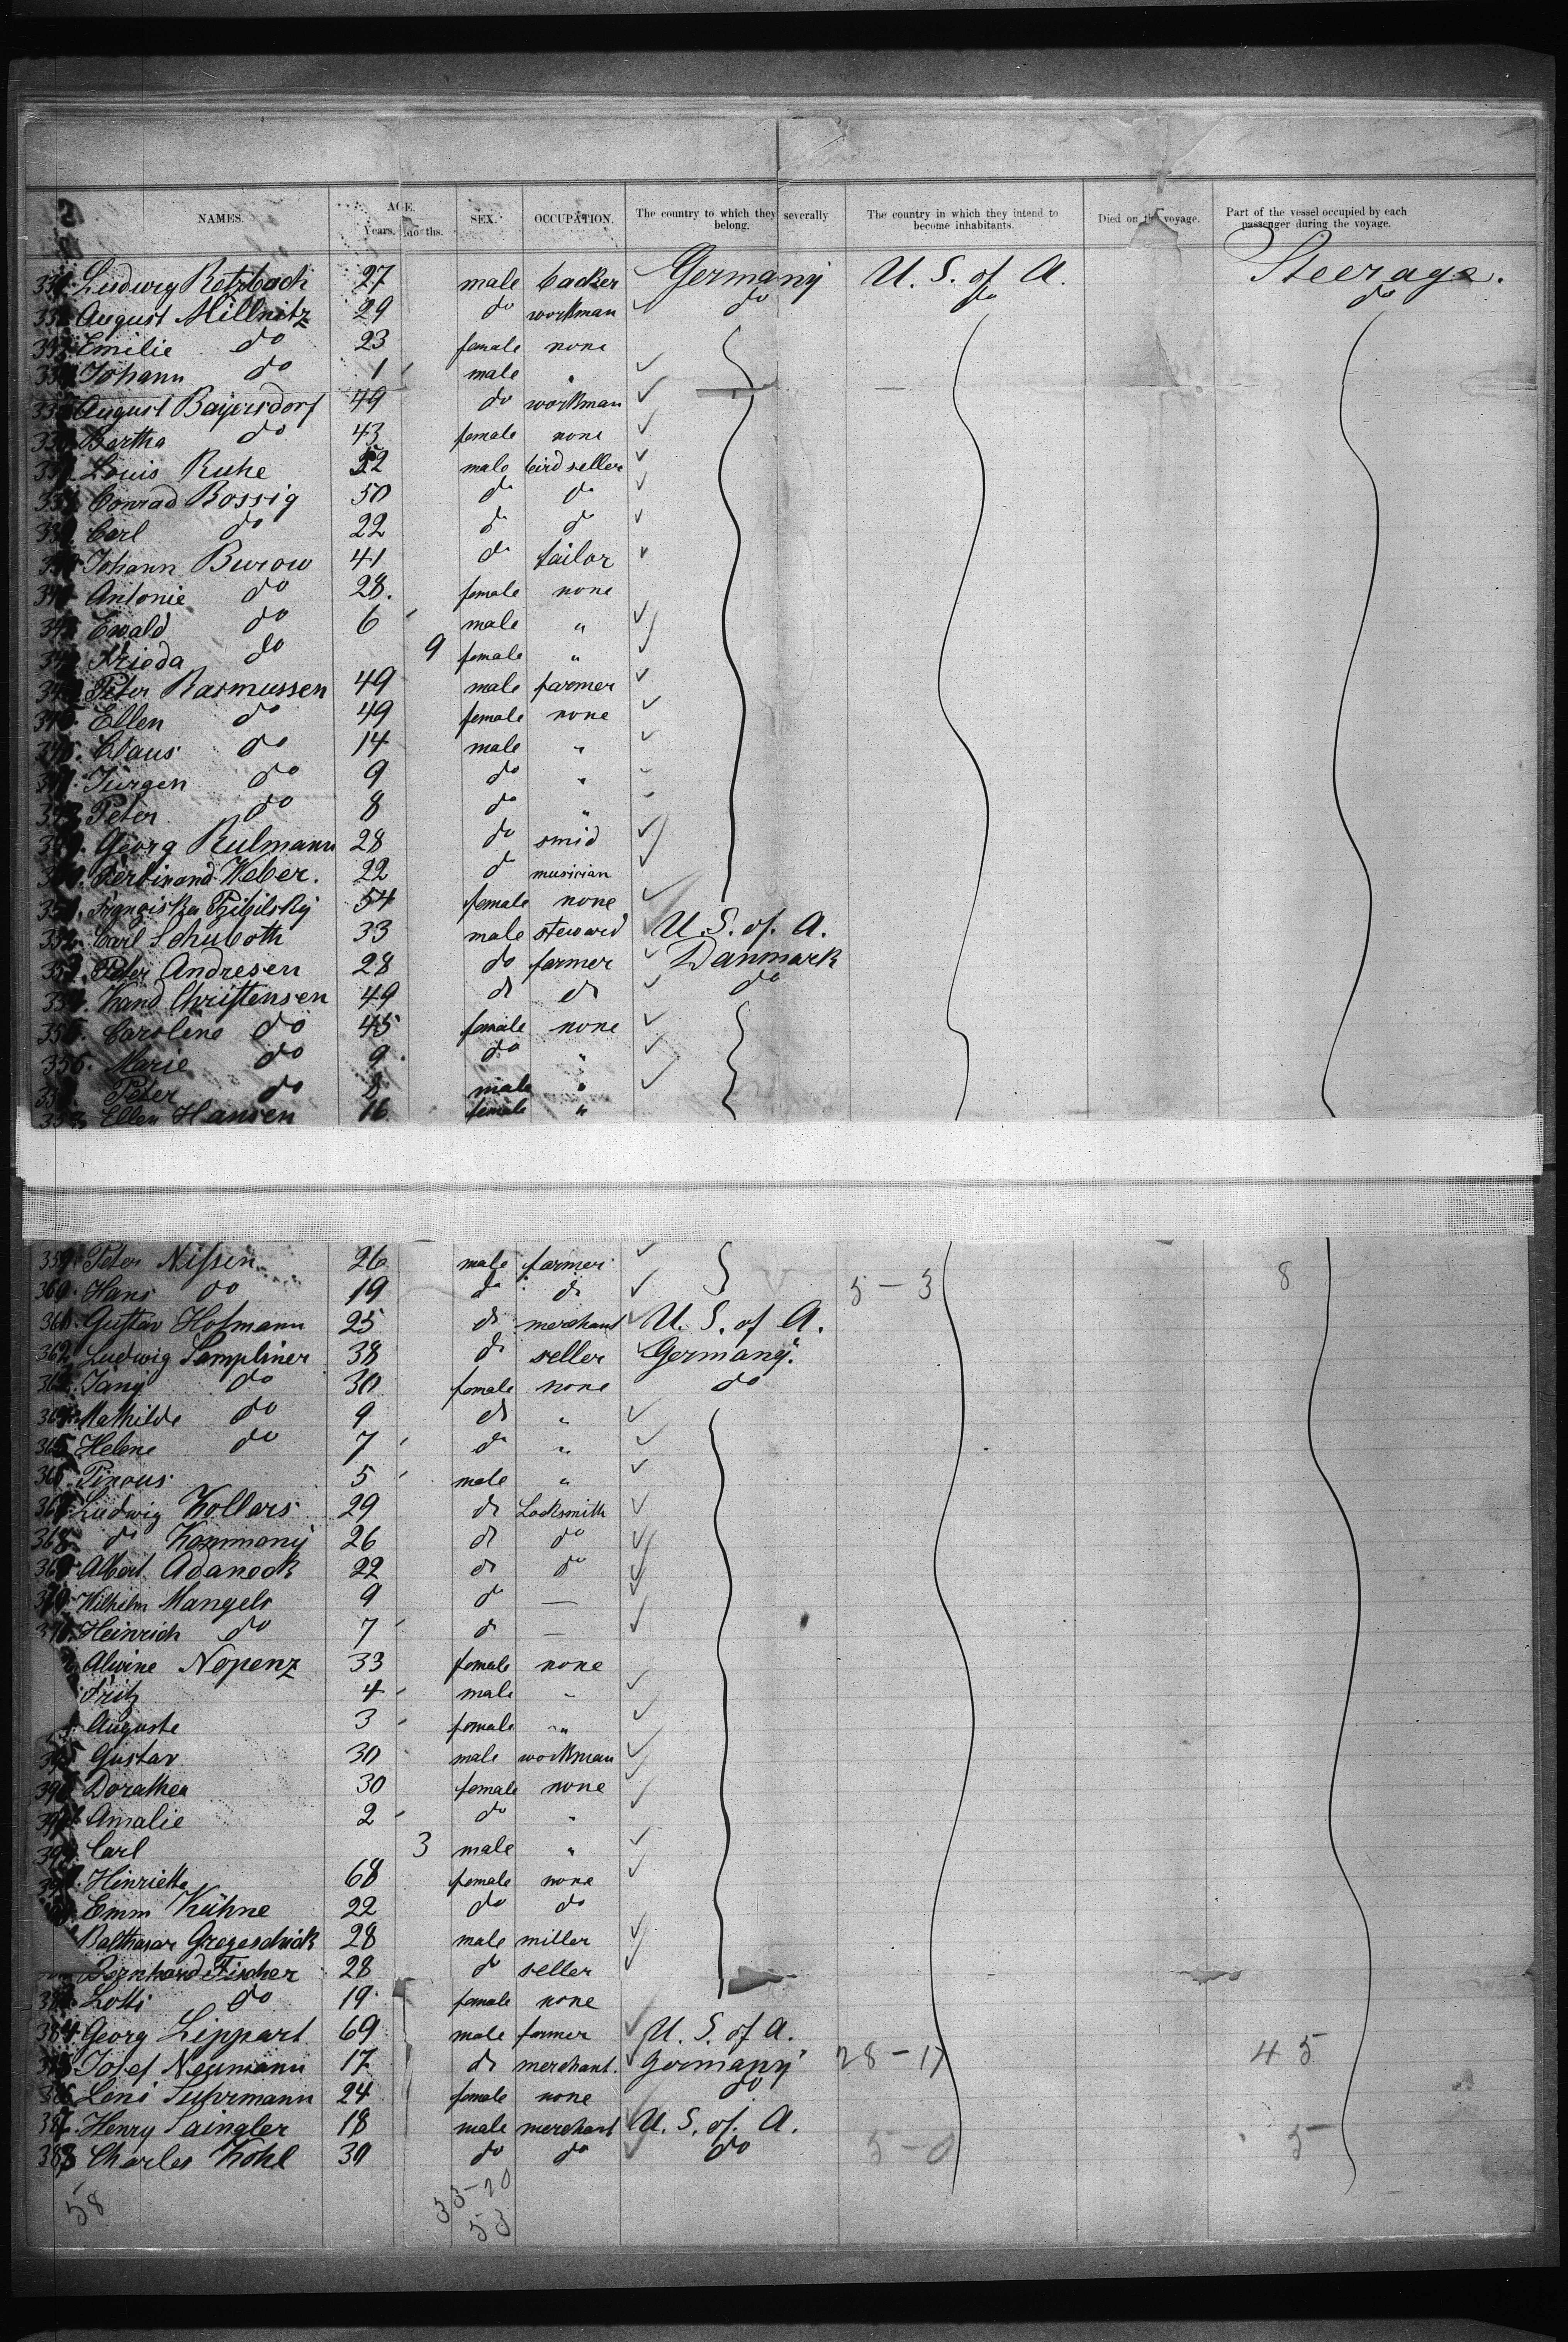 NAMES. AGE. SEX. OCCUPATION. The country to which they severally belong. The country in which they intend to become inhabitants. Died on the voyage. Part of the vessel occupied by each passenger during the voyage.
Years. Months.
Ludwig Retzbach 27 male backer Germany U. S. of A. Steerage.
August Millnitz 29 do workman do do do
Emilie do 23 female none
Johann do 1 male "
August Bayersdorf 49 do workman
Bertha do 43 female none
Louis Ruhe male bird seller
Conrad Bossig 50 do do
Carl do 22 do do
Johann Burow 41 do tailor
Antonie do 28. female none
Ewald do 6 male "
do 9 female "
Peter Rasmussen 49 male farmer
Ellen do 49 female none
Claus do 14 male "
Jürgen do 9 do "
Peter do 8 do "
Georg Rulmann 28 do smid
Ferdinand Weber. 22 do musician
54 female none
Carl Schuboth 33 male steward U. S. of. A.
Peter Andresen 28 do farmer Danmark
Christensen 49 do do do
355. Caroline do 45 female none
356. Marie do 9 do "
Peter do male "
Ellen Hansen 16. female "
359. Peter Nissen 26 male farmer
360. Hans do 19 do do 5 - 3 8
361. Gustav Hofmann 25 do merchant U. S. of A.
362. Ludwig Sampliner 38 do seller Germany.
do 30 female none do
Mathilde do 9 do "
365. Helene do 7 do "
5 male "
Ludwig Kollars 29 do Locksmith
368. do 26 do do
369. Albert Adaneck 22 do do
Wilhelm Mangels 9 do —
Heinrich do 7 do —
Alwine Nopenz 33 female none
Fritz 4 male "
Auguste 3 female "
Gustav 30 male workman
Dorathea 30 female none
Amalie 2 do "
Carl 3 male "
Hinriette 68 female none
Emm Kühne 22 do do
Balthasar 28 male miller
Bernhard Fischer 28 do seller
Lotti do 19 female none
384. Georg Lippart 69 male farmer U. S. of A.
Josef Neumann 17 do merchant. Germany 28 - 17 45
Leni Suhrmann 24 female none do
Henry 18 male merchant U. S. of. A.
388 Charles Kohl 30 do do do 5 - 0 5
58 33 - 20
53